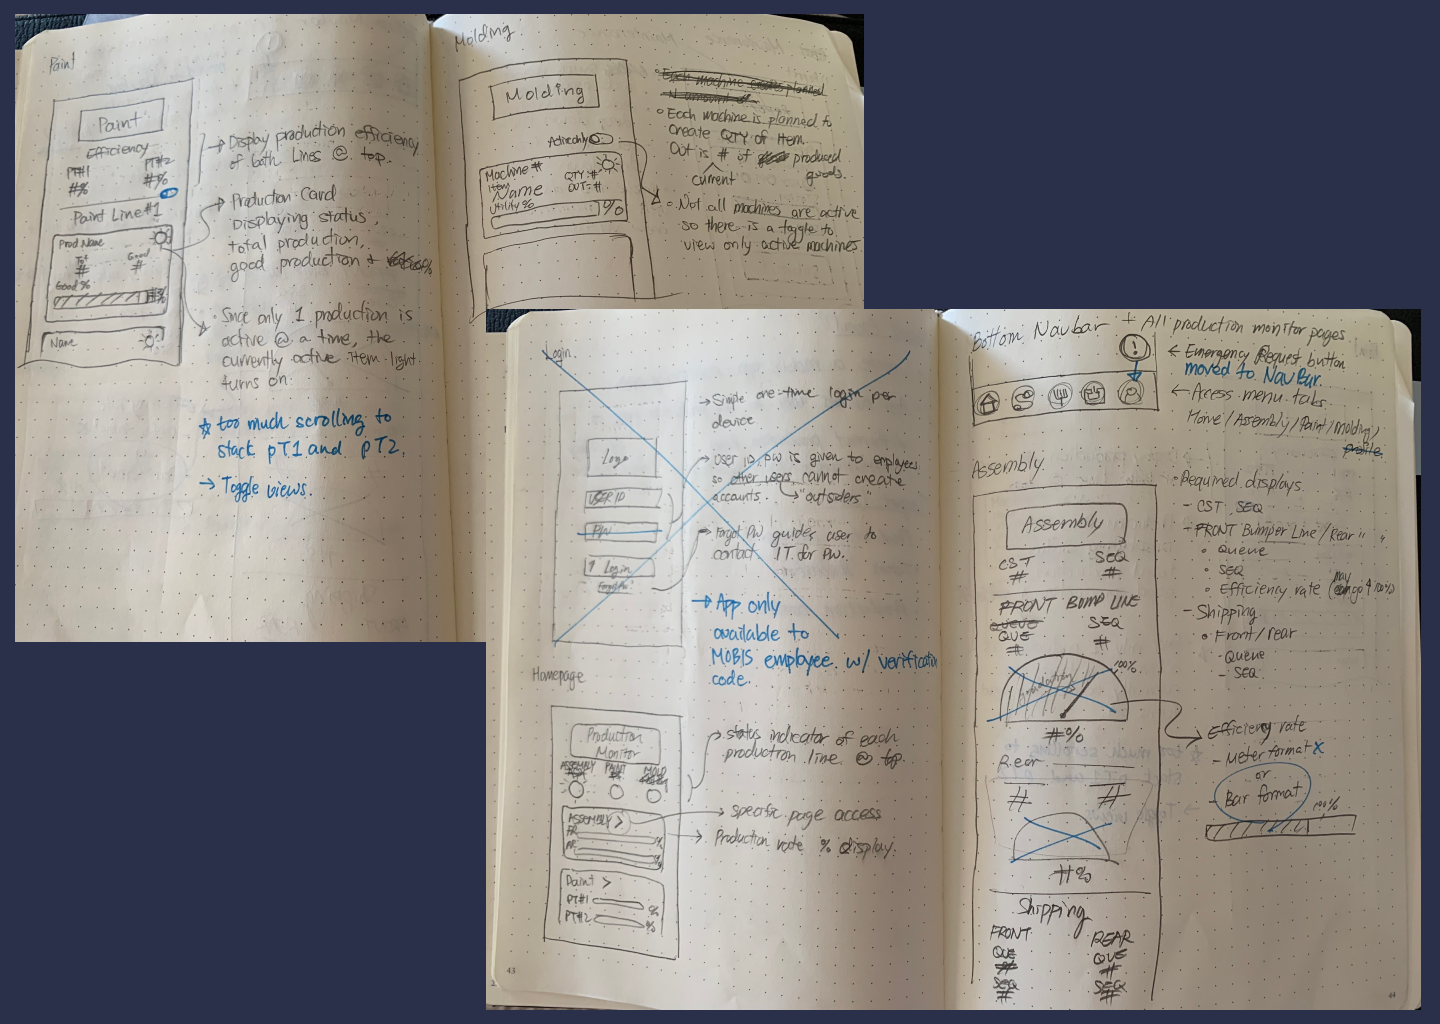 Paint
Paint
Efficiency
PT#1
PT#2
#%
#%
Paint Line #1
Prod Name
Tot
#
Good
#
Good %
#%
Name
→ Display production efficiency
of both lines @ top.
→ Production Card
Displaying status,
total production,
good production +
Since only 1 production is
active @ a time, the
currently active item light
turns on.
☆ too much scrolling to
stack PT1 and PT2.
→ Toggle views.
Molding
Molding
Active only
Machine #
Item
Name
QTY:#
OUT:#
Utility %
%
Each machine creates planned
N amount of
Each machine is planned to
create QTY of Item.
OUT is # of produced
goods.
current
Not all machines are active
so there is a toggle to
view only active machines
Login
Logo
USER ID
PW
Login
→ Simple one-time login per
device
→ User ID, PW is given to employees
so other users cannot create
accounts. → "outsiders"
→ forgot PW guides user to
contact IT for PW.
→ App only
available to
MOBIS employee w/ verification
code.
Homepage
Production
Monitor
ASSEMBLY
PAINT
MOLD
ASSEMBLY >
FR
%
%
Paint >
PT#1
%
PT#2
%
→ status indicator of each
production line @ top.
→ specific page access
→ Production rate % display.
43
Bottom Navbar + All production monitor pages
!
← Emergency Request button
moved to NavBar.
← Access menu tabs
Home / Assembly / Paint / molding /
profile
Assembly
Assembly
CST
#
SEQ
#
FRONT BUMP LINE
QUEUE
QUE
#
SEQ
#
100%
#%
Rear
#
#
#%
Shipping
FRONT
REAR
QUE
QUE
#
#
SEQ
SEQ
#
#
Required displays
- CST, SEQ
- FRONT Bumper Line / Rear " "
Queue
SEQ
Efficiency rate (may go ↑ 100%)
- Shipping
Front / rear
- Queue
- SEQ
Efficiency rate
- Meter format X
or
- Bar format
100%
44